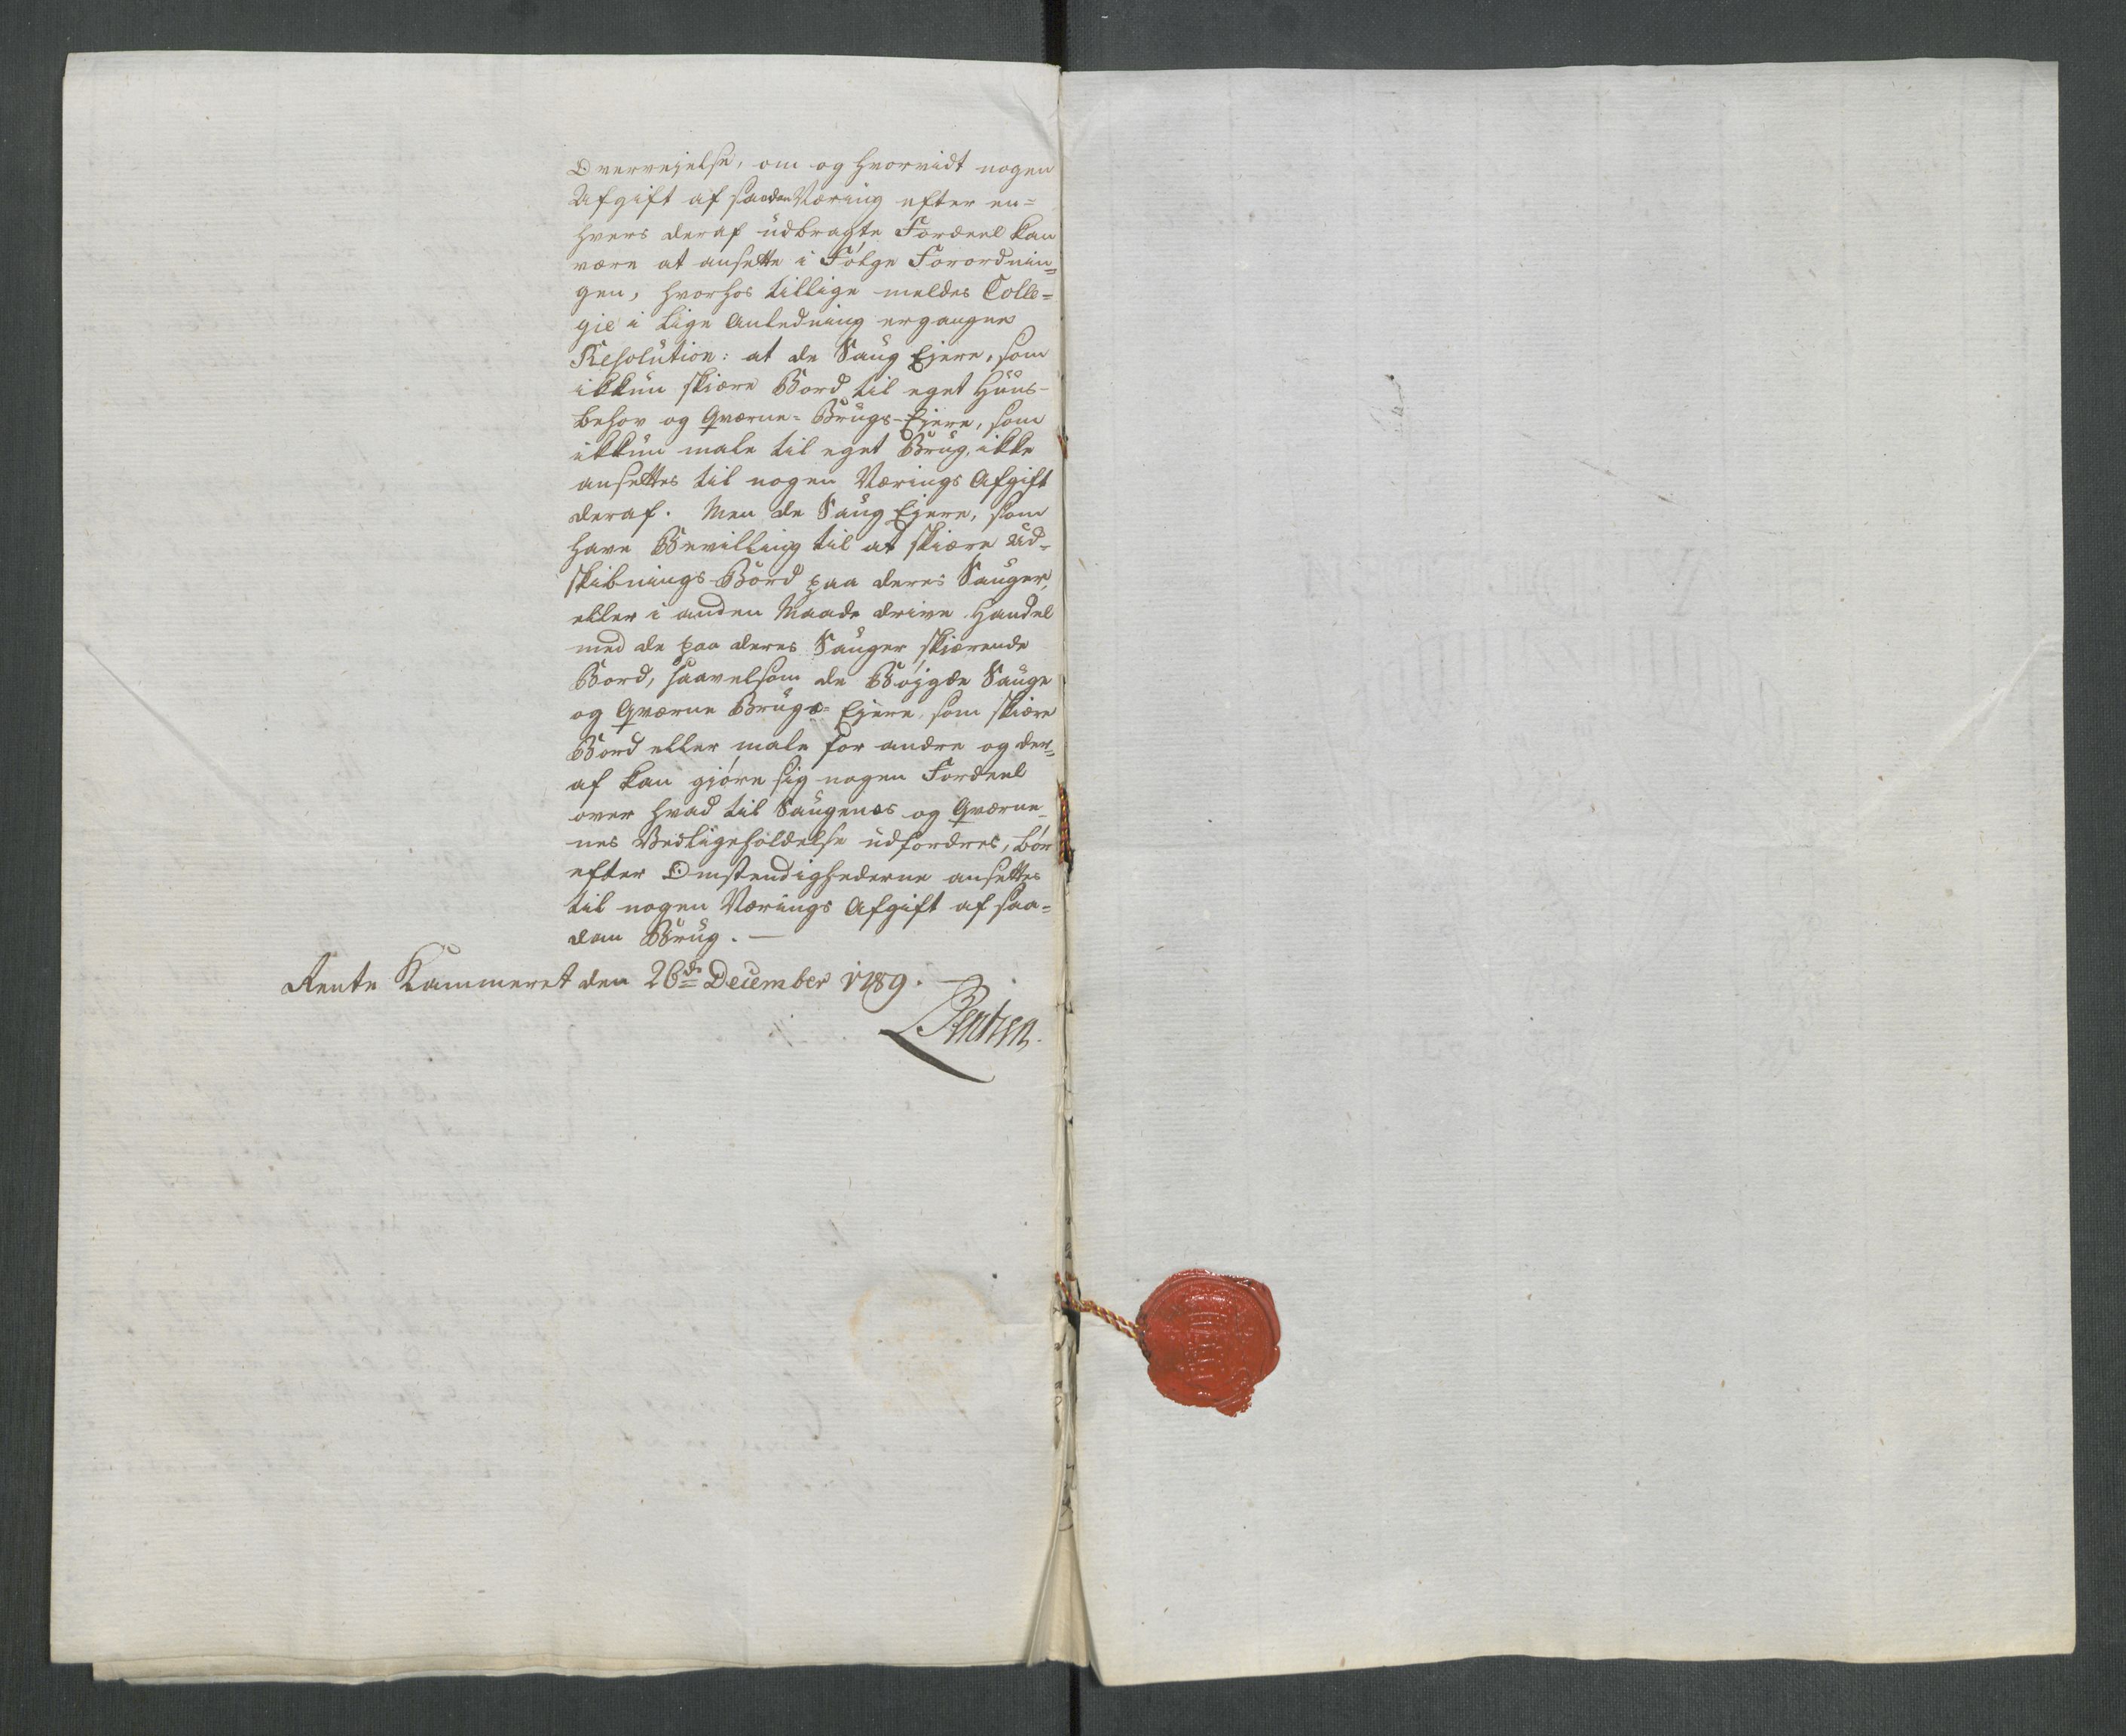 Overvejelse, om og hvorvidt nogen
Afgift af saadan Næring efter en=
hvers deraf udbragte Fordeel kan
være at ansette i Følge Forordnin=
gen, hvorhos tillige meldes Colle=
gie i lige Anledning ergangne
Resolution: at de Saug Ejere, som
ikkun skiære Bord til eget Huus-
behov og Qværne=Brugs-Ejere, som
ikkun male til eget Brug, ikke
ansettes til nogen Nærings Afgift
deraf. Men de Saug Ejere, som
have Bevilling til at skiære Ud-
skibnings-Bord paa deres Sauger,
eller i anden Maade drive Handel
med de paa deres Sauger skiærende
Bord, saavelsom de Bøjgde Sauge
og Qværne Brugs=Ejere, som skiære
Bord eller male for andre og der=
af kan gjøre sig nogen Fordeel
over hvad til Saugenes og Qværne-
nes Vedligeholdelse udfordres, bør
efter Omstendighederne ansettes
til nogen Nærings Afgift af saa=
dan Brug. —
Rente Kammeret den 26de December 1789.
Bentzen.